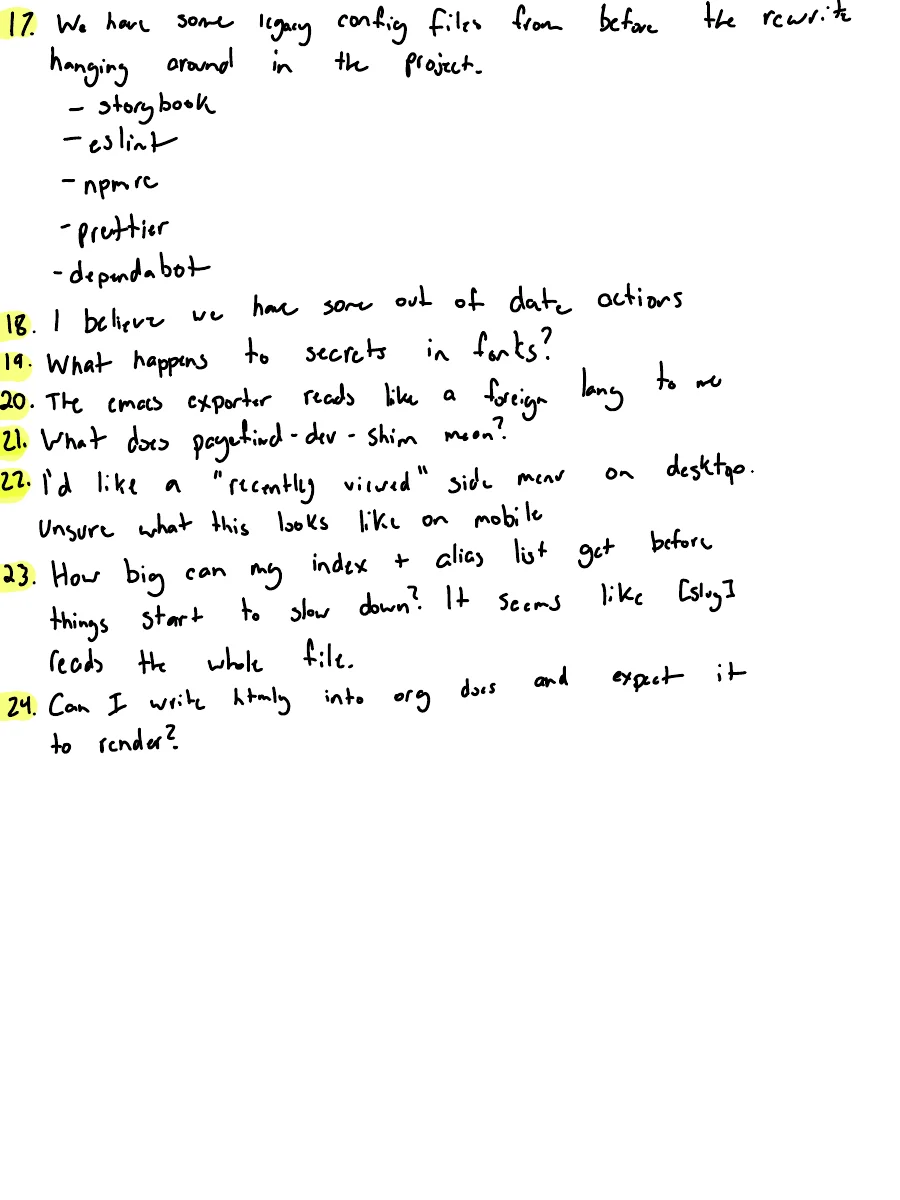 17. We have some legacy config files from before the rewrite
hanging around in the project.
- storybook
- eslint
- npmrc
- prettier
- dependabot
18. I believe we have some out of date actions
19. What happens to secrets in forks?
20. The emacs exporter reads like a foreign lang to me
21. What does pagefind-dev-shim mean?
22. I'd like a "recently viewed" side menu on desktop.
Unsure what this looks like on mobile
23. How big can my index + alias list get before
things start to slow down? It seems like [slug]
reads the whole file.
24. Can I write htmly into org docs and expect it
to render?